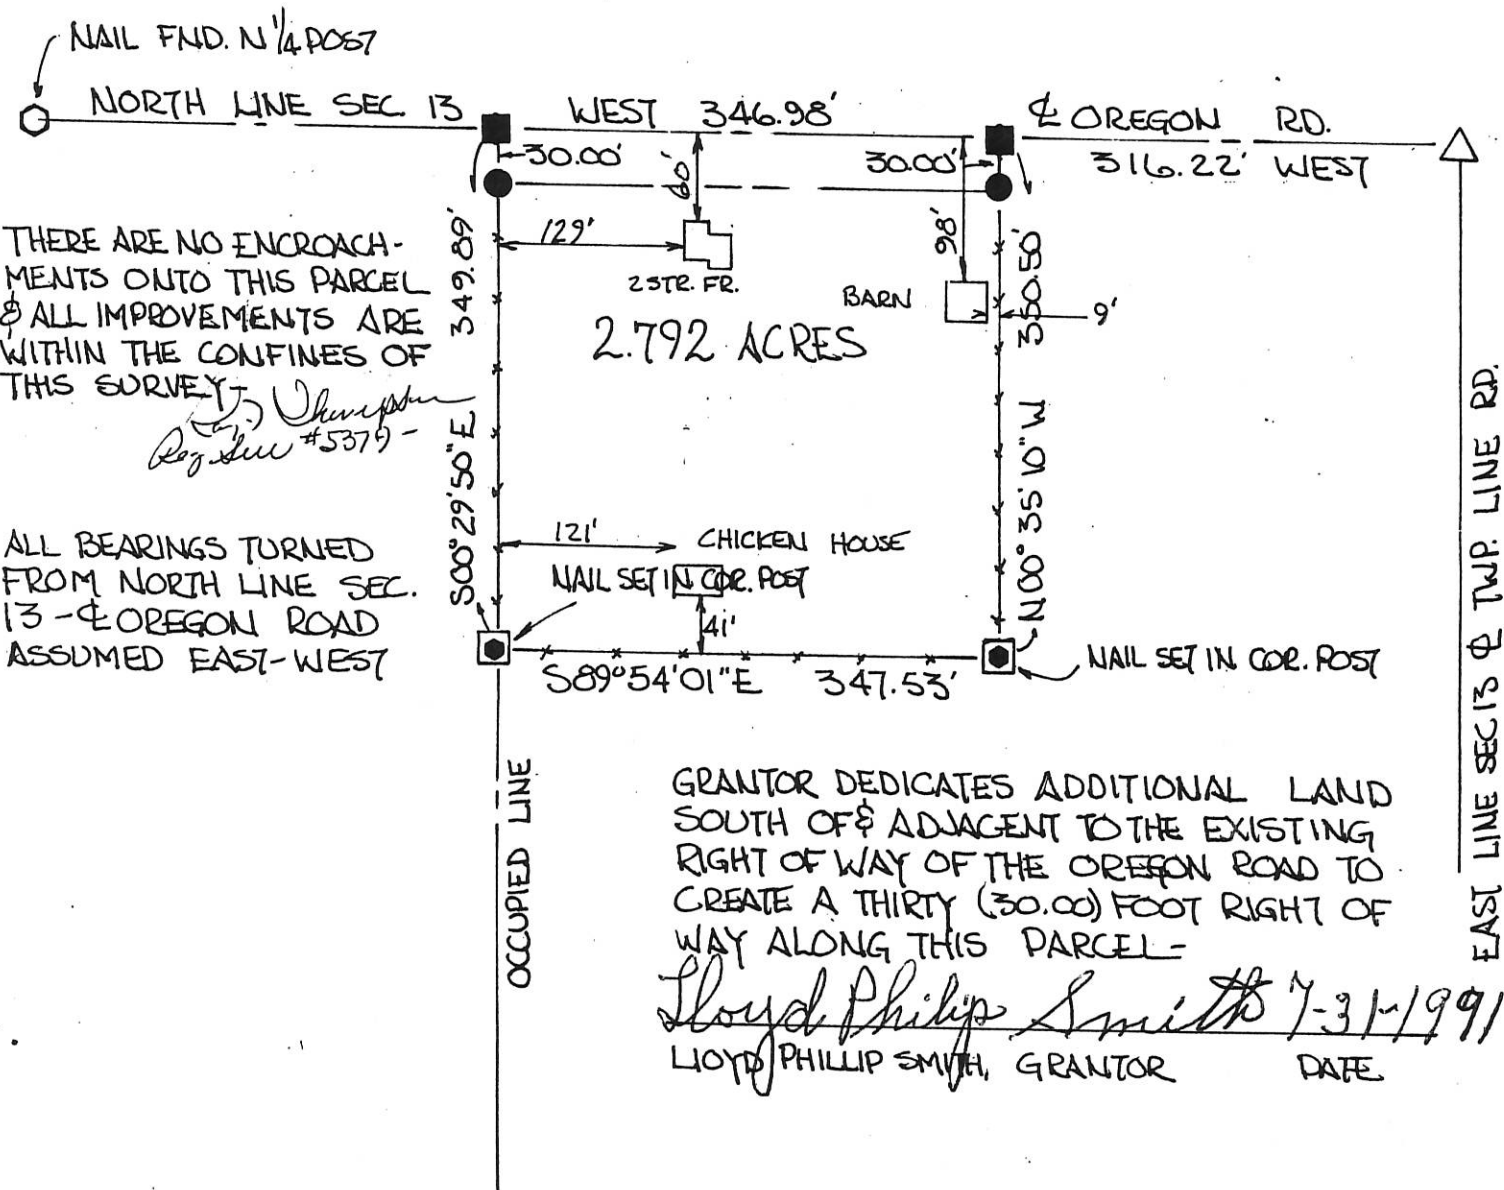 NAIL FND. N 1/4 POST
NORTH LINE SEC. 13
WEST 346.98'
℄ OREGON RD.
316.22' WEST
30.00'
30.00'
60'
98'
129'
2 STR. FR.
BARN
9'
2.792 ACRES
THERE ARE NO ENCROACH-
MENTS ONTO THIS PARCEL
& ALL IMPROVEMENTS ARE
WITHIN THE CONFINES OF
THIS SURVEY-
#5379-
S00°29'50"E 349.89'
N00°35'10"W 350.50'
ALL BEARINGS TURNED
FROM NORTH LINE SEC.
13-℄ OREGON ROAD
ASSUMED EAST-WEST
121'
CHICKEN HOUSE
NAIL SET IN COR. POST
41'
S89°54'01"E 347.53'
NAIL SET IN COR. POST
EAST LINE SEC 13 ℄ TWP. LINE RD.
OCCUPIED LINE
GRANTOR DEDICATES ADDITIONAL LAND
SOUTH OF & ADJACENT TO THE EXISTING
RIGHT OF WAY OF THE OREGON ROAD TO
CREATE A THIRTY (30.00) FOOT RIGHT OF
WAY ALONG THIS PARCEL-
Lloyd Philip Smith 7-31-1991
LLOYD PHILLIP SMITH, GRANTOR DATE